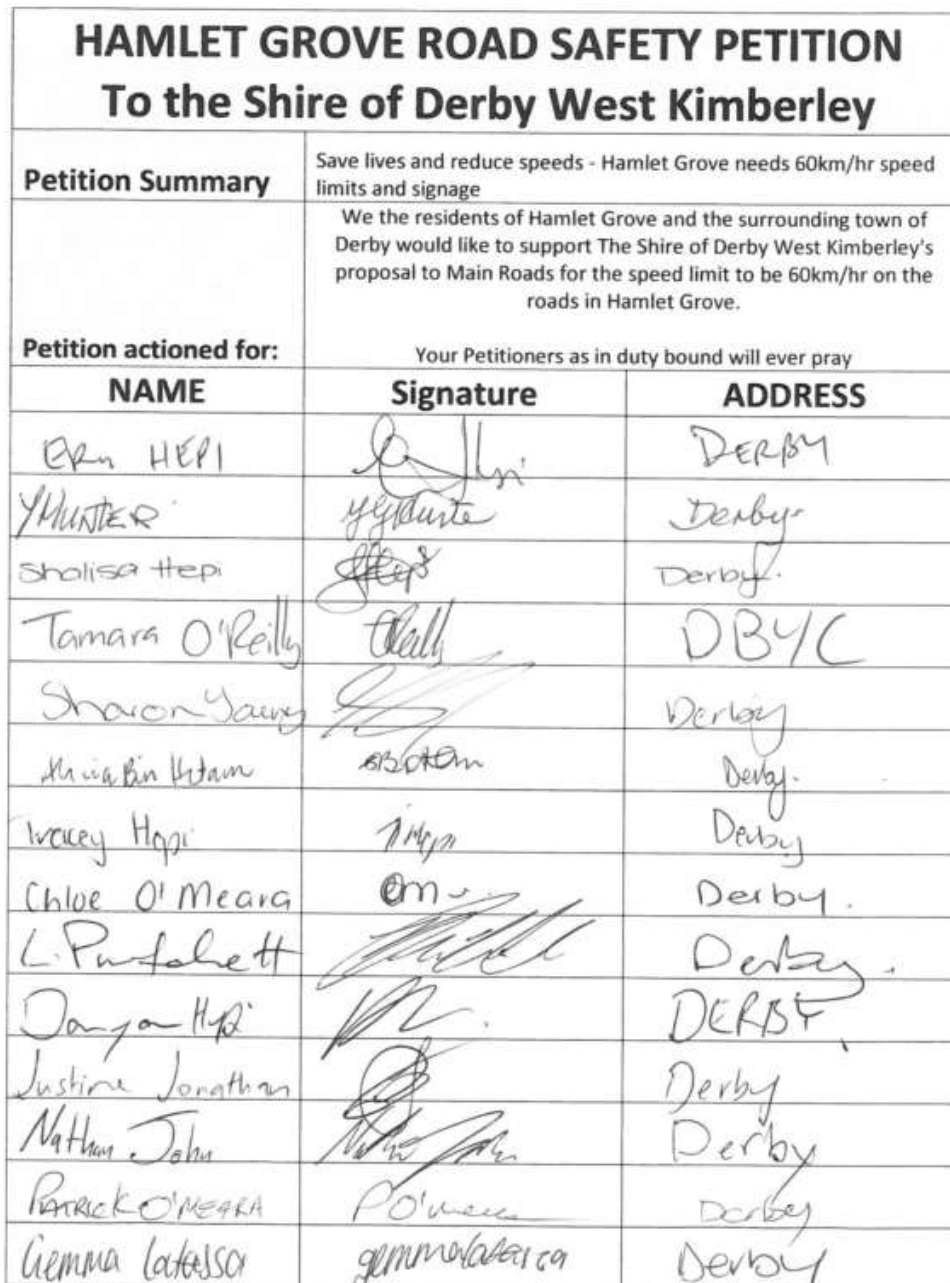 HAMLET GROVE ROAD SAFETY PETITION
To the Shire of Derby West Kimberley
Petition Summary
Save lives and reduce speeds - Hamlet Grove needs 60km/hr speed
limits and signage
We the residents of Hamlet Grove and the surrounding town of
Derby would like to support The Shire of Derby West Kimberley's
proposal to Main Roads for the speed limit to be 60km/hr on the
roads in Hamlet Grove.
Petition actioned for:
Your Petitioners as in duty bound will ever pray
NAME Signature ADDRESS
HEPI DERBY
Y HUNTER Derby.
Sholisa Hepi Derby.
Tamara O'Reilly DBYC
Sharon Young Derby
Bin Derby.
Tracey Hepi Derby
Chloe O'Meara Derby.
L. Derby.
Hepi DERBY
Justine Jonathan Derby
Nathan John Nathan John Derby
PATRICK O'MEARA P O'Meara Derby
Gemma Gemma Derby